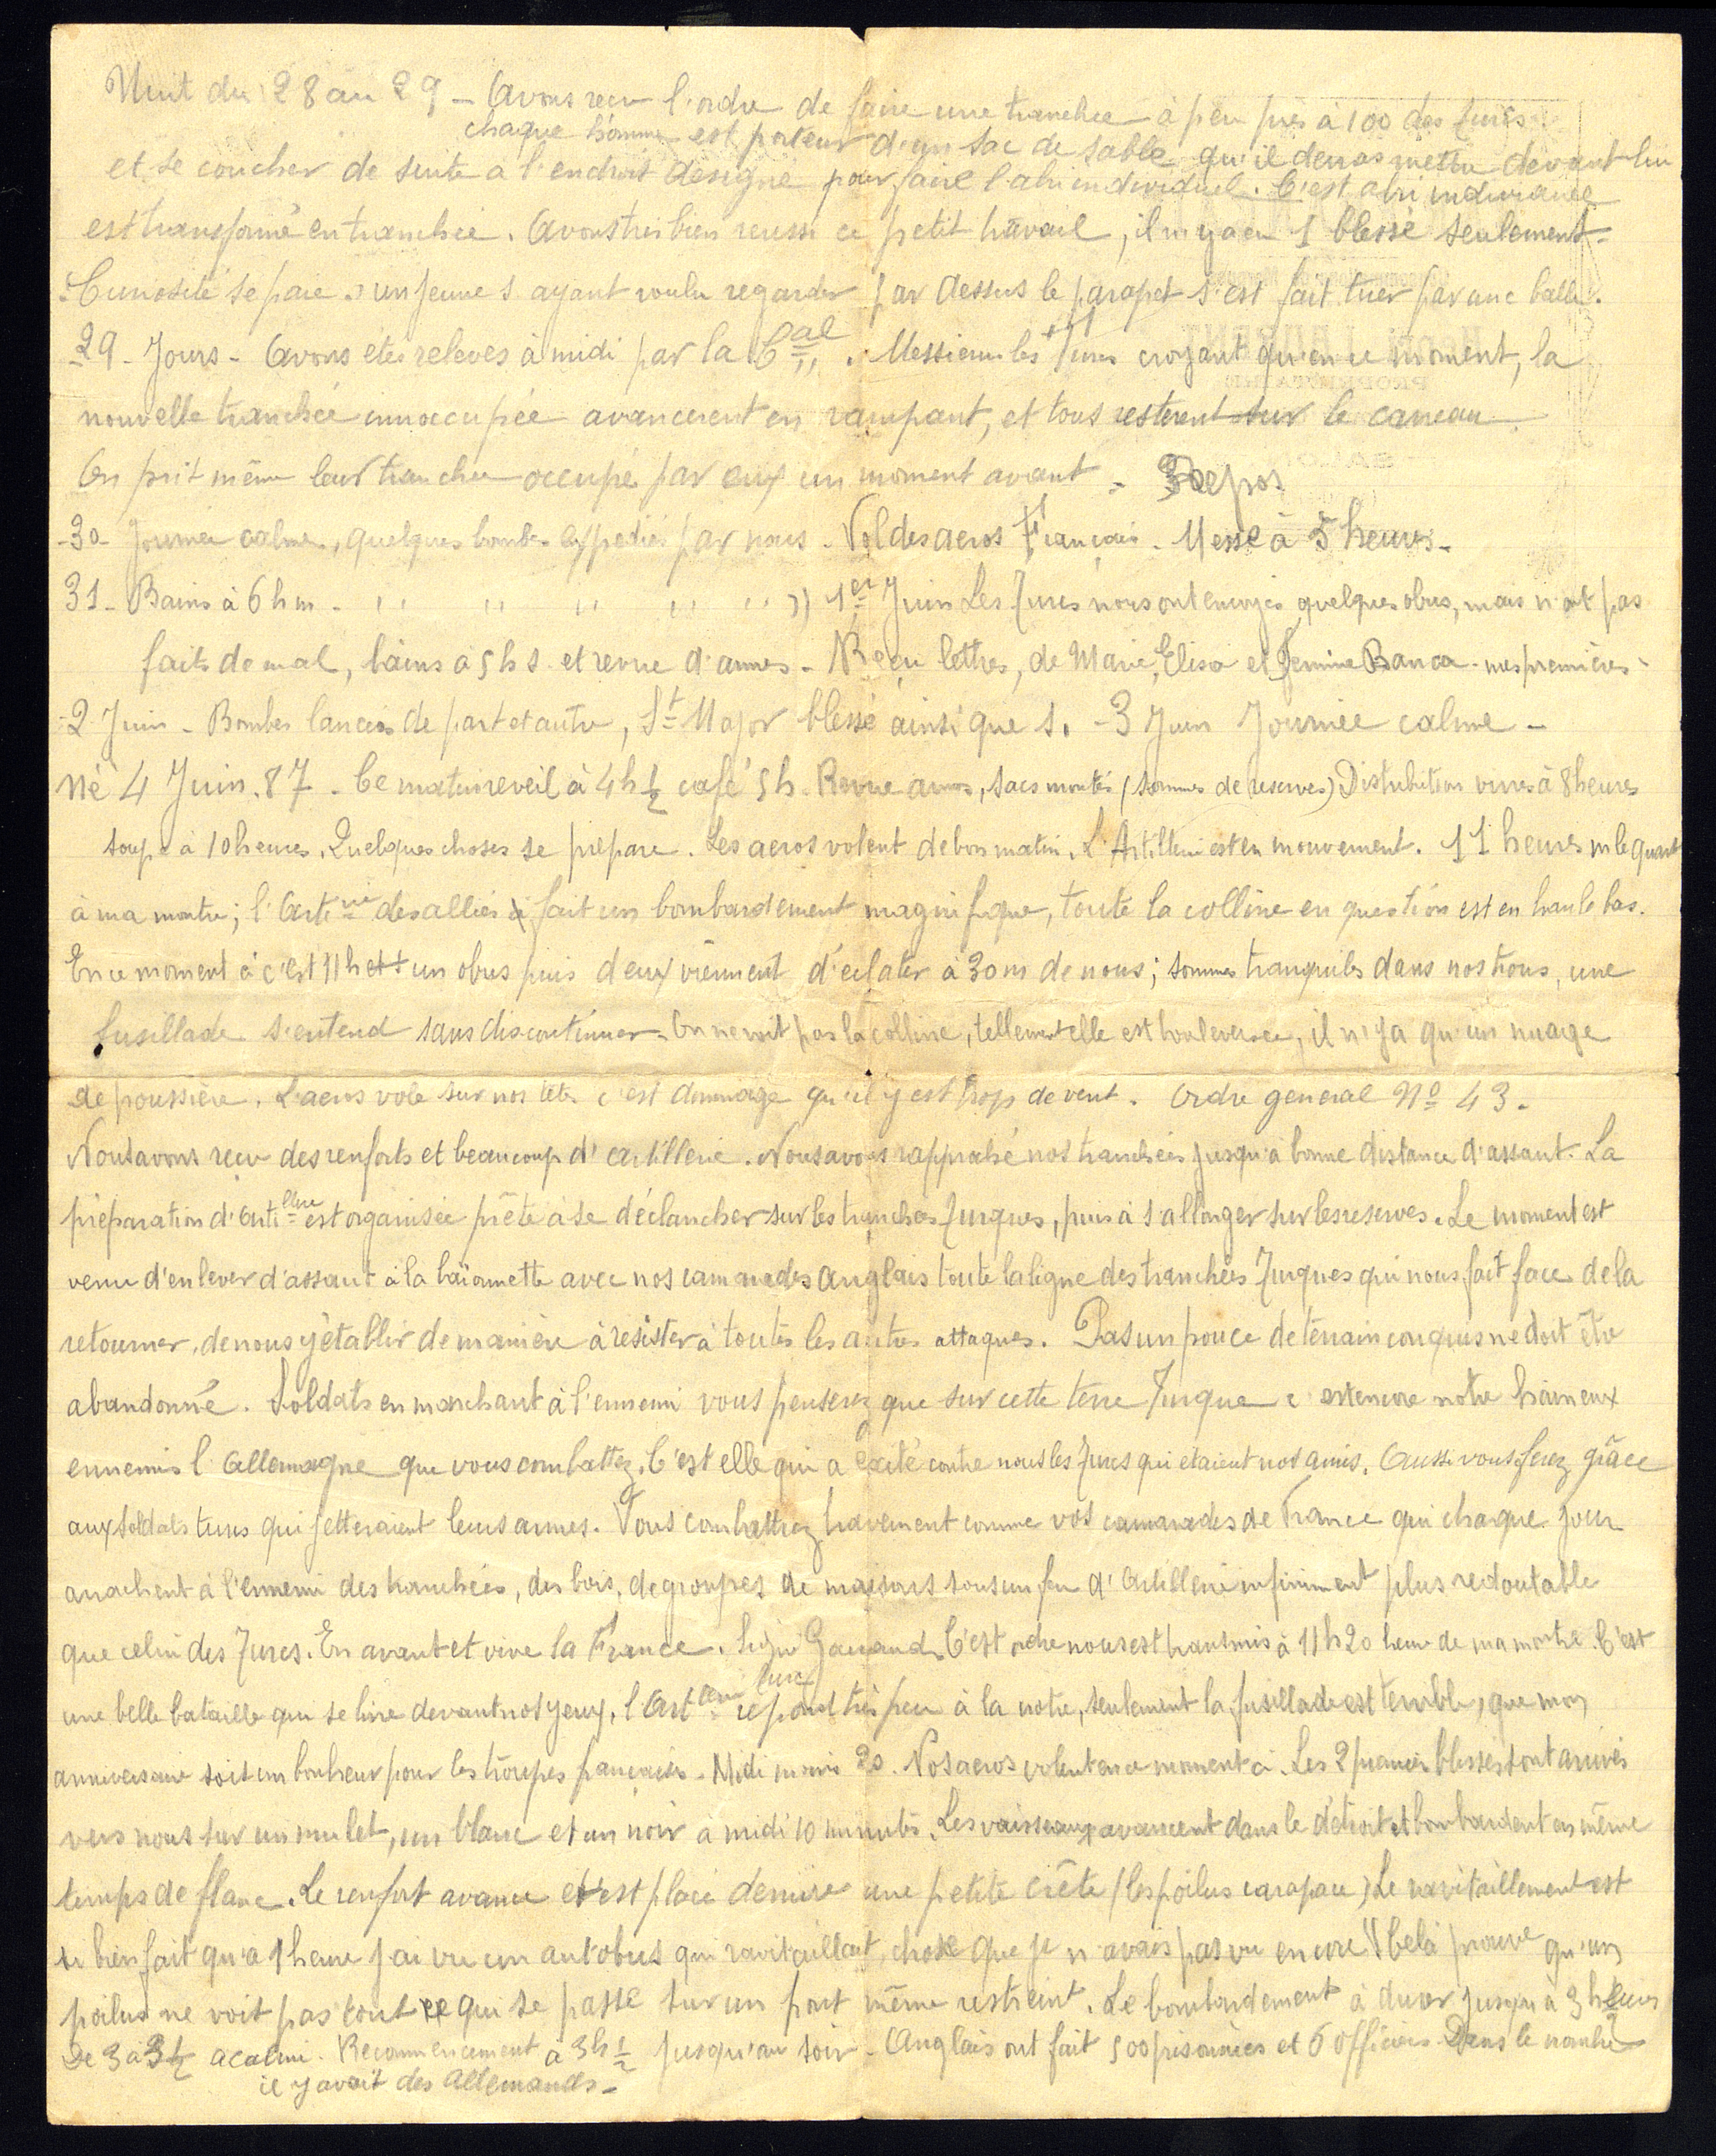 Nuit du 28 au 29 - Avons reçu l'ordre de faire une tranchée à peu près à 100 des turcs.
chaque homme est porteur d'un sac de sable qu'il devras mettre devant lui
et se coucher de suite a l'endroit désigné pour faire l'abri individuel. C'est abri individuel
est transformé en tranchée. Avons très bien reussi ce petit travail, il n'y a eu 1 blessé seulement.
Curiosité se paie un jeune s ayant voulu regarder par dessus le parapet s'est fait tuer par une balle.
-29- Jours - Avons étés relevés à midi par la Cal. Messieurs les Turcs croyant qu'en ce moment, la
nouvelle tranchée innoccupée avancerent en rampant, et tous resterent sur le carreau.
On prit même leur tranchée occupé par eux un moment avant - Repos
-30- Journée calme, quelques bombes expediés par nous. Vol des aeros Français. Messe à 5 heures -
31 - Bains à 6 h m - '' '' '' '' '' )) 1er Juin Les Turcs nous ont envoyés quelques obus, mais n'ont pas
faits de mal, bains à 5 h s et revue d'armes - Reçu lettres, de Marie, Elisa et Banca - mes premières -
-2 Juin - Bombes lancées de part et autre, St Major blessé ainsi que s. - 3 Juin Journée calme -
Né 4 Juin. 87 - Ce matin reveil à 4h ½ café 5h. Revue armes, sacs montés (sommes de reserves) Distribution vivres à 8 heures
soupe à 10 heures. Quelques choses se prépare. Les aeros volent de bon matin. L'Artillerie est en mouvement. 11 heures m le quart
à ma montre; l'Artie des alliés fait un bombardement magnifique, toute la colline en question est en haut le bas.
En ce moment à c'est 11h et un obus puis deux viennent d'éclater à 30 m de nous; sommes tranquiles dans nos trous, une
fusillade s'entend sans discontinuer - On ne voit pas la colline, tellement elle est bouleversée, il n'y a qu'un nuage
de poussière. L'aeros vole sur nos tete c'est dommage qu'il y est trop de vent. Ordre general No 43.
Nous avons reçu des renforts et beaucoup d'artillerie. Nous avons rapproché nos tranchées jusqu'à bonne distance d'assaut. La
préparation d'Artillerie est organisée prête à se déclancher sur les tranchées Turques, puis à s'allonger sur les reserves. Le moment est
venu d'enlever d'assaut à la baïonnette avec nos camarades Anglais toute la ligne des tranchées Turques qui nous fait face de la
retourner, de nous y établir de manière à résister à toutes les autres attaques. Pas un pouce de terrain conquis ne doit être
abandonné. Soldats en marchant à l'ennemi vous penserez que sur cette terre Turque c'est encore notre haineux
ennemis l'Allemagne que vous combattez. C'est elle qui a excité contre nous les Turcs qui étaient nos amis. Aussi vous ferez grâce
aux soldats turcs qui jetteraient leurs armes. Vous combattrez bravement comme vos camarades de France qui chaque jour
arrachent à l'ennemi des tranchées, des bois, de groupes de maisons sous un feu d'Artillerie infiniment plus redoutable
que celui des Turcs. En avant et vive la France. Signé Gouraud. C'est ordre nous est transmis à 11h20 heure de ma montre. C'est
une belle bataille qui se livre devant nos yeux, l'Arterie turc repond très peu à la notre, seulement la fusillade est terrible, que mon
anniversaire soit un bonheur pour les troupes françaises. Midi moins 20. Nos aeros volent en ce moment ci. Les 2 premiers blessés sont arrivés
vers nous sur un mulet, un blanc et un noir à midi 10 minutes. Les vaisseaux avancent dans le détroit et bombardent en même
temps de flanc. Le renfort avance et s'est placé derrière une petite crête (les poilus carapace) Le ravitaillement est
si bien fait qu'à 1 heure j'ai vu un autobus qui ravitaillait, chose que je n'avais pas vu encore !! Celà prouve qu'un
poilus ne voit pas tout ce qui se passe sur un front même restreint. Le bombardement à durer jusqu'à 3 heures
De 3 à 3½ acalmi. Recommencement à 3h ½ jusqu'au soir - Anglais ont fait 500 prisonniers et 6 officiers Dans le nombre
il y avait des Allemands -